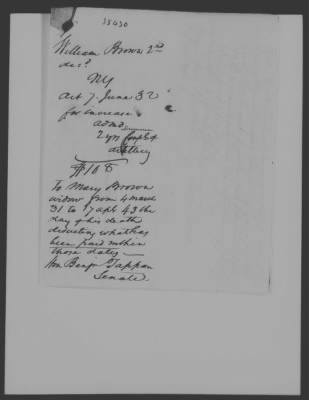 35430
William Brown 2nd
dec?
NY
Act 7. June 32
for increase
admd
2 yrs
artillery
$108
To Mary Brown
widow from 4 march
31 to 17 apl 43 the
day of his death
deducting what has
been paid within
those dates
Hon Benjn Tappan
Senate